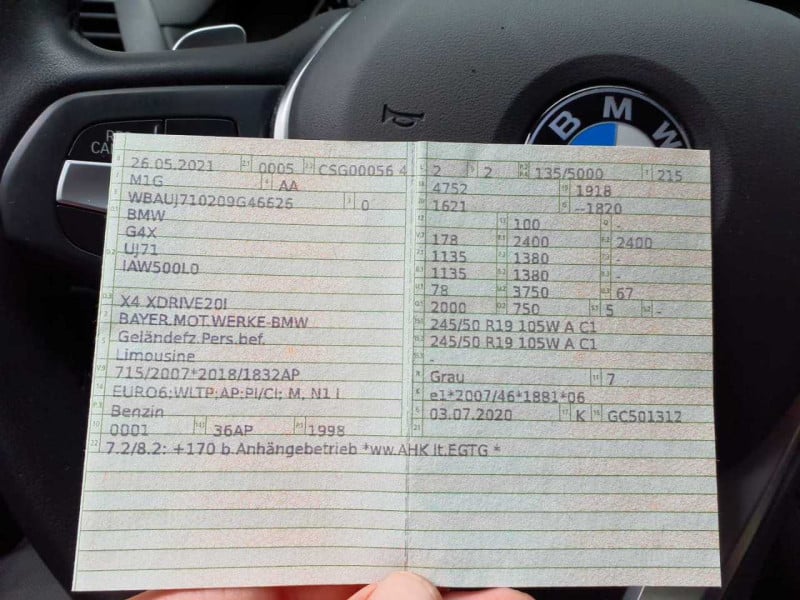 BMW
26.05.2021 0005 CSG00056 4
M1G AA
WBAUJ710209G46626 0
BMW
G4X
UJ71
IAW500L0
X4 XDRIVE20I
BAYER.MOT.WERKE-BMW
Geländefz.Pers.bef.
Limousine
715/2007*2018/1832AP
EURO6;WLTP;AP;PI/CI; M, N1 I
Benzin
0001 36AP 1998
7.2/8.2: +170 b.Anhängebetrieb *ww.AHK lt.EGTG *
2 2 135/5000 215
4752 1918
1621 --1820
100 -
178 2400 2400
1135 1380 -
1135 1380 -
78 3750 67
2000 750 5 -
245/50 R19 105W A C1
245/50 R19 105W A C1
-
Grau 7
e1*2007/46*1881*06
03.07.2020 K GC501312